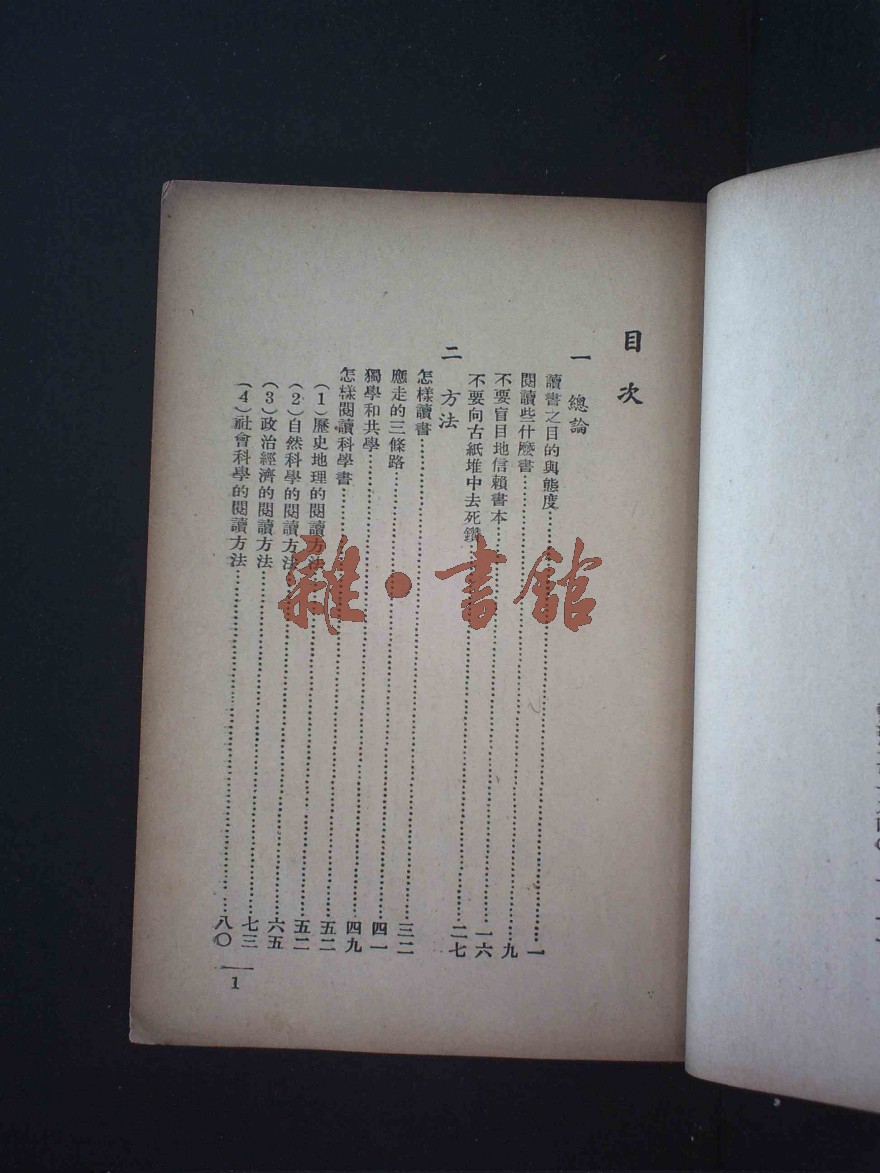 目次
一 總論
讀書之目的與態度……一
閱讀些什麼書……九
不要盲目地信賴書本……一六
不要向古紙堆中去死鑽……二七
二 方法
怎樣讀書……三二
應走的三條路……四一
獨學和共學……四九
怎樣閱讀科學書……五二
(1)歷史地理的閱讀方法……五二
(2)自然科學的閱讀方法……六五
(3)政治經濟的閱讀方法……七三
(4)社會科學的閱讀方法……八〇
1
雜·書館